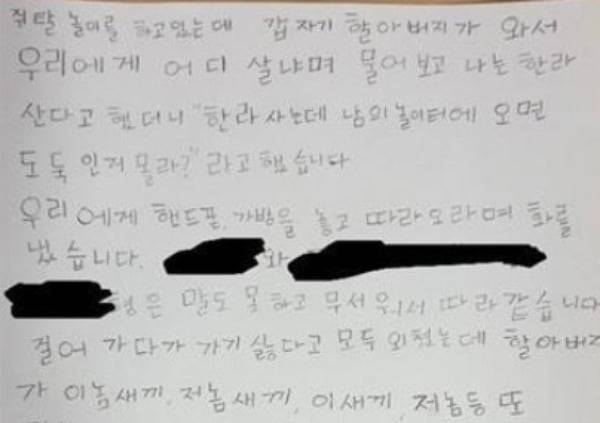 쥐탈 놀이를 하고있는데 갑자기 할아버지가 와서
우리에게 어디 살냐며 물어보고 나는 한라
산다고 했더니 "한라 사는데 남의 놀이터에 오면
도둑인거 몰라?" 라고 했습니다
우리에게 핸드폰, 가방을 놓고 따라오라며 화를
냈습니다. 와
형은 말도 못하고 무서워서 따라갔습니다
걸어가다가 가기 싫다고 모두 외쳤는데 할아버지
가 이놈새끼, 저놈새끼, 이새끼, 저놈등 또